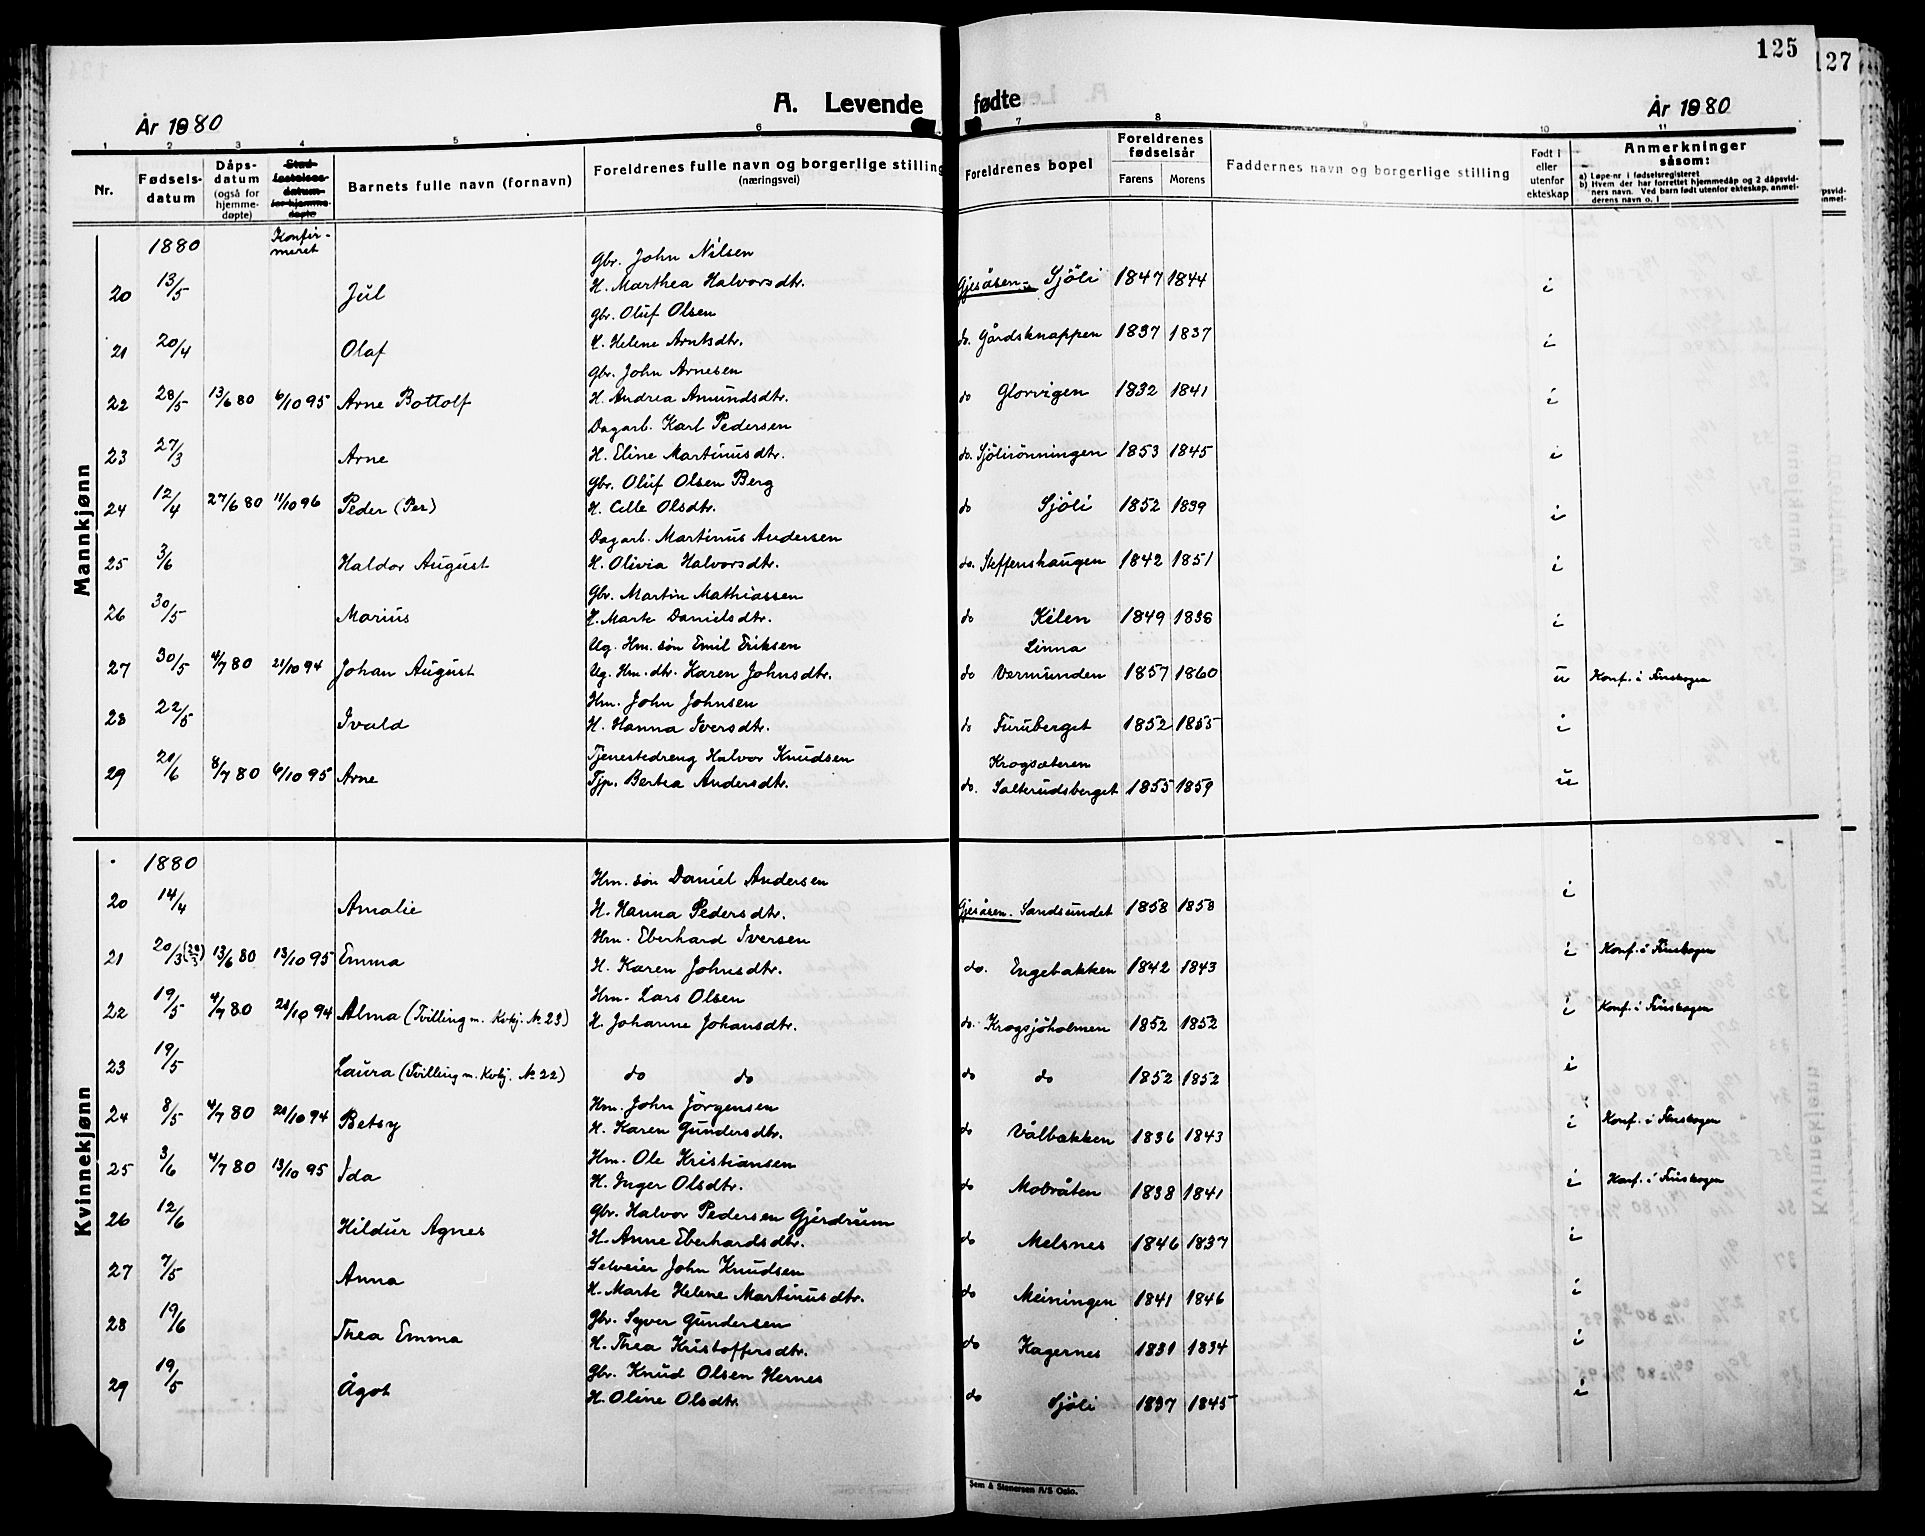 125
127
A. Levende fødte
År 1880
År 1880
1 2 3 4 5 6 7 8 9 10 11
Nr. Fødsels-datum Dåps-datum (også for hjemme-døpte) Stad-festelses-datum for hjemme-døpte Barnets fulle navn (fornavn) Foreldrenes fulle navn og borgerlige stilling (næringsvei) Foreldrenes bopel Foreldrenes fødselsår Farens Morens Faddernes navn og borgerlige stilling Født i eller utenfor ekteskap Anmerkninger såsom:
a) Løpe-nr i fødselsregisteret
b) Hvem der har forrettet hjemmedåp og 2 dåpsvid-
ners navn. Ved barn født utenfor ekteskap, anmel-
derens navn o. l
Mannkjønn
1880 Konfir-meret
Gbr. John Nilsen
20 13/5 Jul H. Marthea Halvorsdtr. Gjesåsen - Sjöli 1847 1844 i
Gbr. Oluf Olsen
21 20/4 Olaf H. Helene Arntsdtr. do. Gårdsknappen 1837 1837 i
Gbr. John Arnesen
22 28/5 13/6 80 6/10 95 Arne Bottolf H. Andrea Amundsdtr. do Glorvigen 1832 1841 i
Dagarb. Karl Pedersen
23 27/3 Arne H. Eline Martinusdtr. do. Sjölirönningen 1853 1845 i
Gbr. Oluf Olsen Berg
24 12/4 27/6 80 11/10 96 Peder (Per) H. Cille Olsdtr. do Sjöli 1852 1839 i
Dagarb. Martinus Andersen
25 3/6 Haldor August H. Olivia Halvorsdtr. do. Steffenshaugen 1842 1851 i
Gbr. Martin Mathiassen
26 30/5 Marius H. Marte Danielsdtr. do Kilen 1849 1838 i
Ug. Hm. søn Emil Eriksen Linna
27 30/5 4/7 80 21/10 94 Johan August Ug. Hm. dtr. Karen Johnsdtr. do Vermunden 1857 1860 u Konf. i Finskogen
Hm. John Johnsen
28 22/5 Ivald H. Hanna Iversdtr. do Furuberget 1852 1855 i
Tjenestedreng Halvor Knudsen Krogsæteren
29 20/6 8/7 80 6/10 95 Arne Tjp. Bertea Andersdtr. do. Salterudsberget 1855 1859 u
Kvinnekjønn
1880
Hm. søn Daniel Andersen
20 14/4 Amalie H. Hanna Pedersdtr. Gjesåsen. Sandsundet 1858 1858 i
Hm. Eberhard Iversen
21 20/3 (29/3) 13/6 80 13/10 95 Emma H. Karen Johnsdtr. do. Engebakken 1842 1843 i Konf. i Finskogen
Hm. Lars Olsen
22 19/5 4/7 80 21/10 94 Alma (Tvilling m. Kvkj. No 23) H. Johanne Johansdtr. do. Krogsjöholmen 1852 1852 i Konf. i Finskogen
23 19/5 Laura (Tvilling m. Kvkj. No 22) do do do do 1852 1852 i
Hm. John Jörgensen
24 8/5 4/7 80 21/10 94 Betsy H. Karen Gundersdtr. do Vålbakken 1836 1843 i Konf. i Finskogen
Hm. Ole Kristiansen
25 3/6 4/7 80 13/10 95 Ida H. Inger Olsdtr. do Mobråten 1838 1841 i Konf. i Finskogen
Gbr. Halvor Pedersen Gjerdrum
26 12/6 Hildur Agnes H. Anne Eberhardsdtr. do Melsnes 1846 1837 i
Selveier John Knudsen
27 7/5 Anna H. Marte Helene Martinusdtr. do Meiningen 1841 1846 i
Gbr. Syver Gundersen
28 19/6 Thea Emma H. Thea Kristoffersdtr. do Kagernes 1831 1834 i
Gbr. Knud Olsen Hernes
29 19/5 Ågot H. Oline Olsdtr. do Sjöli 1837 1845 i
Sem & Stenersen A/S Oslo.